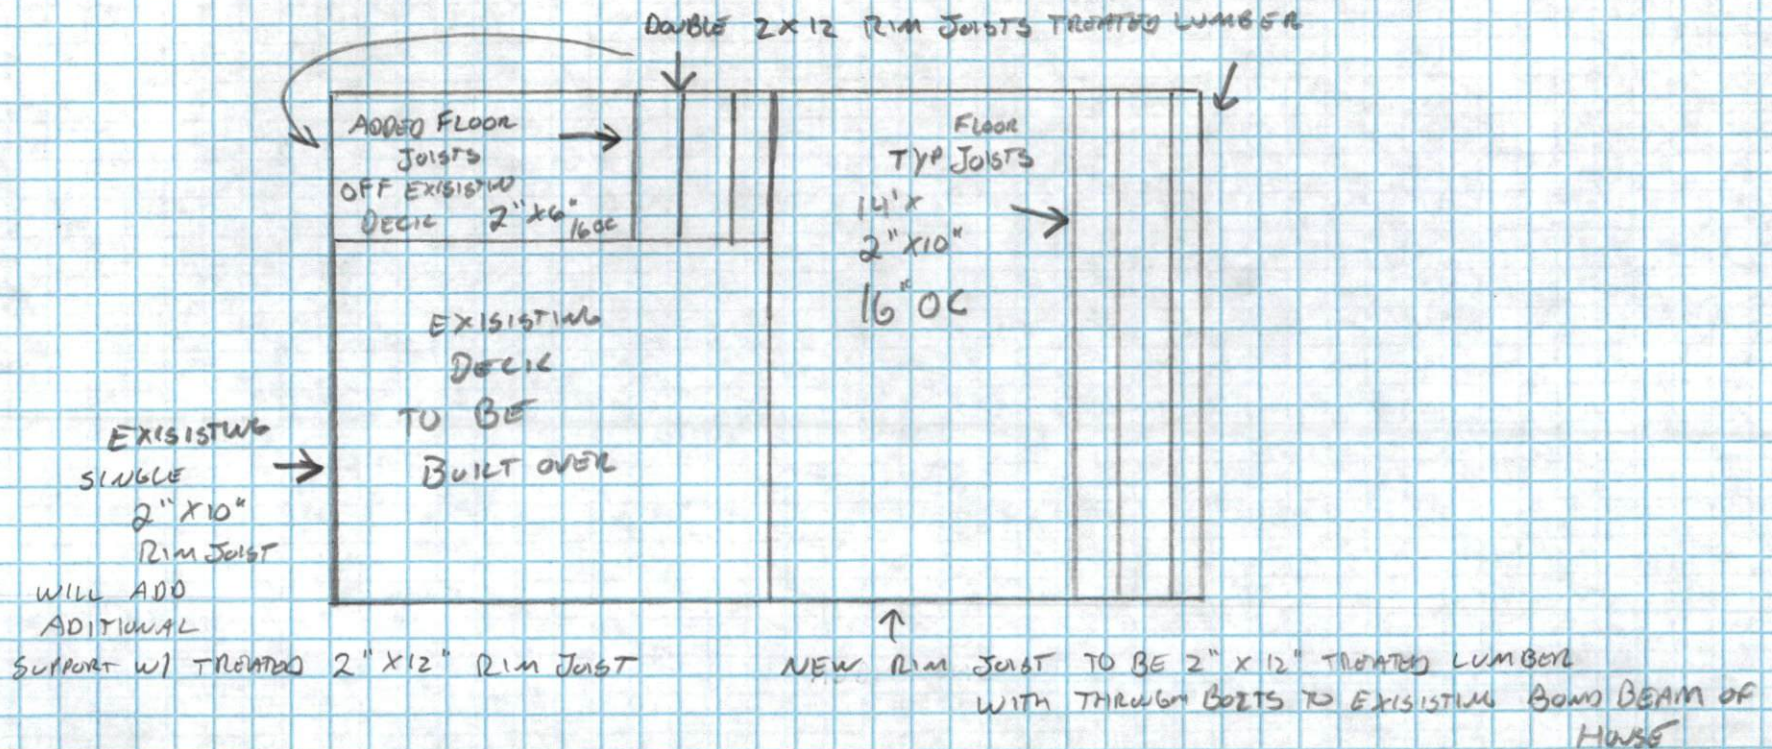 DOUBLE 2X12 RIM JOISTS TREATED LUMBER
ADDED FLOOR
JOISTS
OFF EXISISTING
DECK 2"X6" 16 OC
FLOOR
TYP JOISTS
14'X
2"X10"
16" OC
EXISISTING
DECK
TO BE
BUILT OVER
EXISISTING
SINGLE
2"X10"
RIM JOIST
WILL ADD
ADITIONAL
SUPPORT W/ TREATED 2"X12" RIM JOIST
NEW RIM JOIST TO BE 2"X12" TREATED LUMBER
WITH THROUGH BOLTS TO EXISISTING BOND BEAM OF
HOUSE